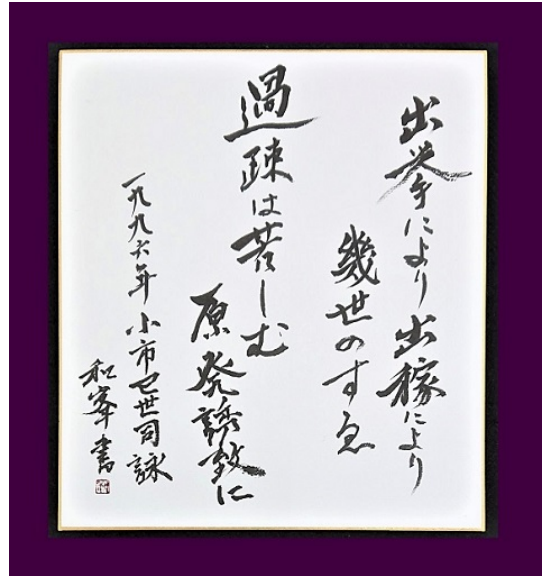 出挙により出稼により
幾世のすゑ
過疎は苦しむ
原発誘致に
一九九六年 小市巳世司詠
和峯書